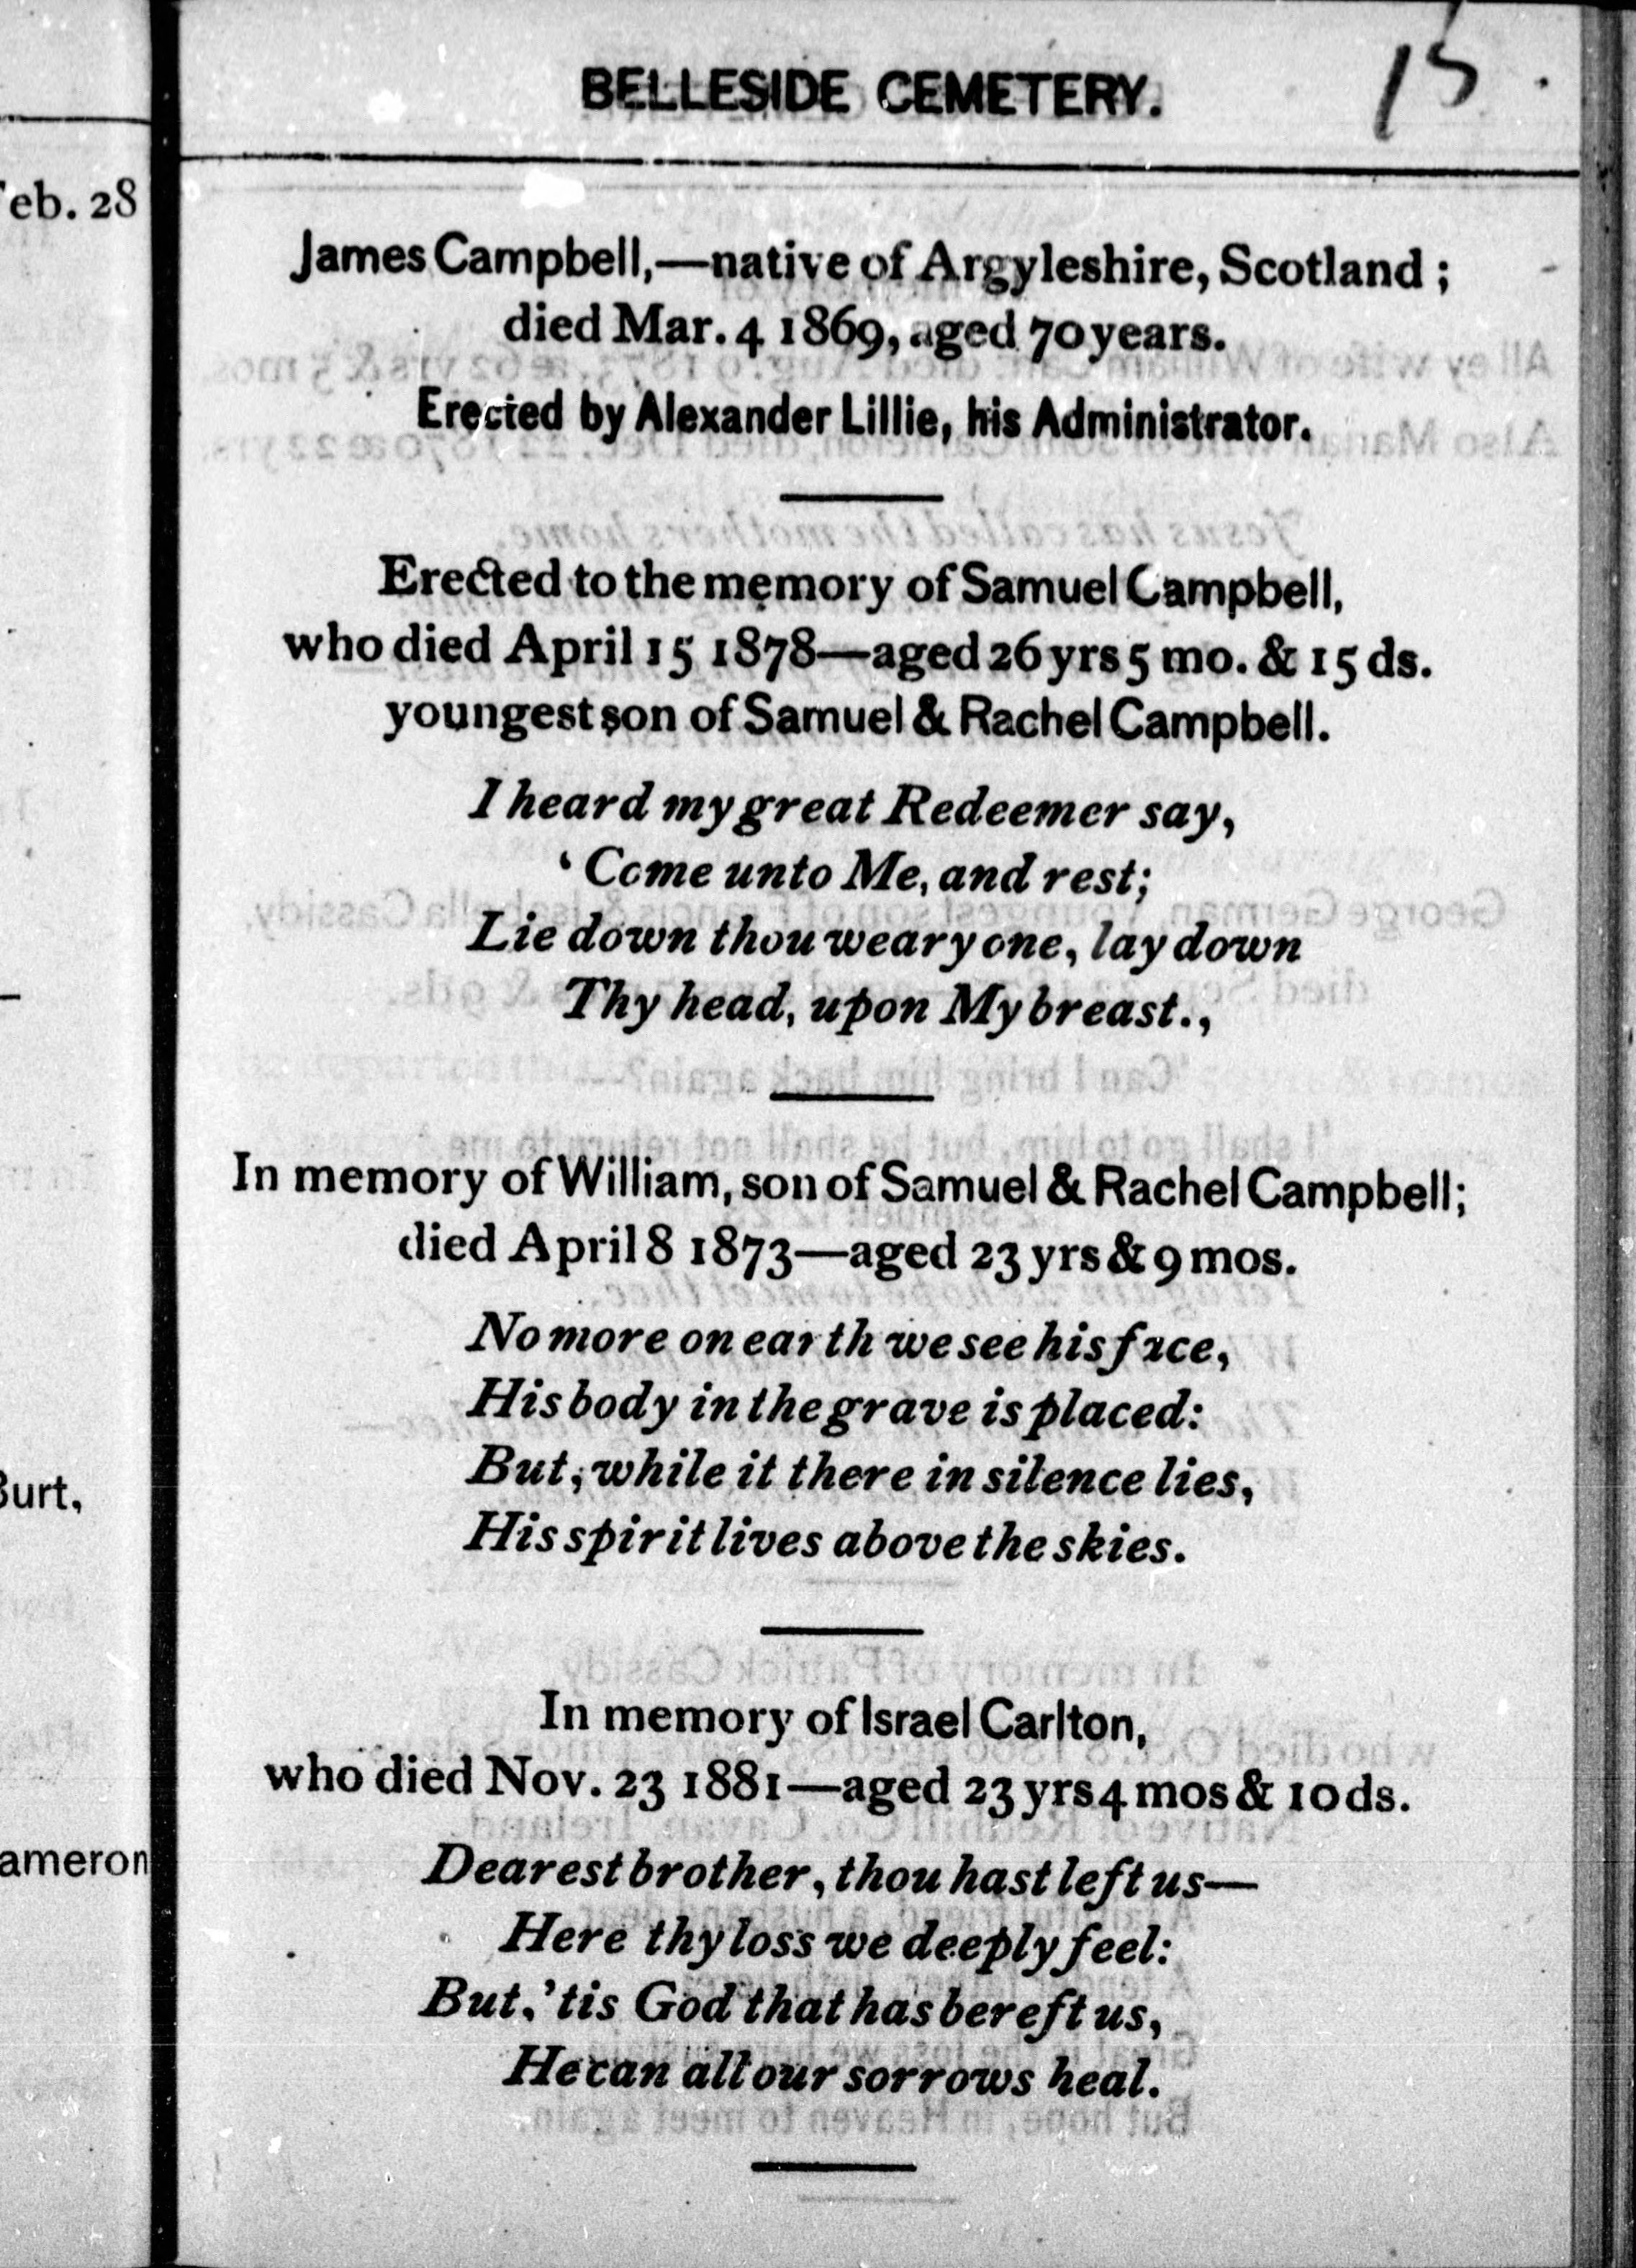 BELLESIDE CEMETERY.
15
eb. 28
James Campbell,—native of Argyleshire, Scotland ;
died Mar. 4 1869, aged 70 years.
Erected by Alexander Lillie, his Administrator.
Erected to the memory of Samuel Campbell,
who died April 15 1878—aged 26 yrs 5 mo. & 15 ds.
youngest son of Samuel & Rachel Campbell.
I heard my great Redeemer say,
‘ Come unto Me, and rest;
Lie down thou weary one, lay down
Thy head, upon My breast.,
In memory of William, son of Samuel & Rachel Campbell;
died April 8 1873—aged 23 yrs & 9 mos.
No more on earth we see his face,
His body in the grave is placed:
But, while it there in silence lies,
Burt,
His spirit lives above the skies.
In memory of Israel Carlton,
who died Nov. 23 1881—aged 23 yrs 4 mos & 10 ds.
ameron
Dearest brother, thou hast left us—
Here thy loss we deeply feel:
But, ’tis God that has bereft us,
He can all our sorrows heal.